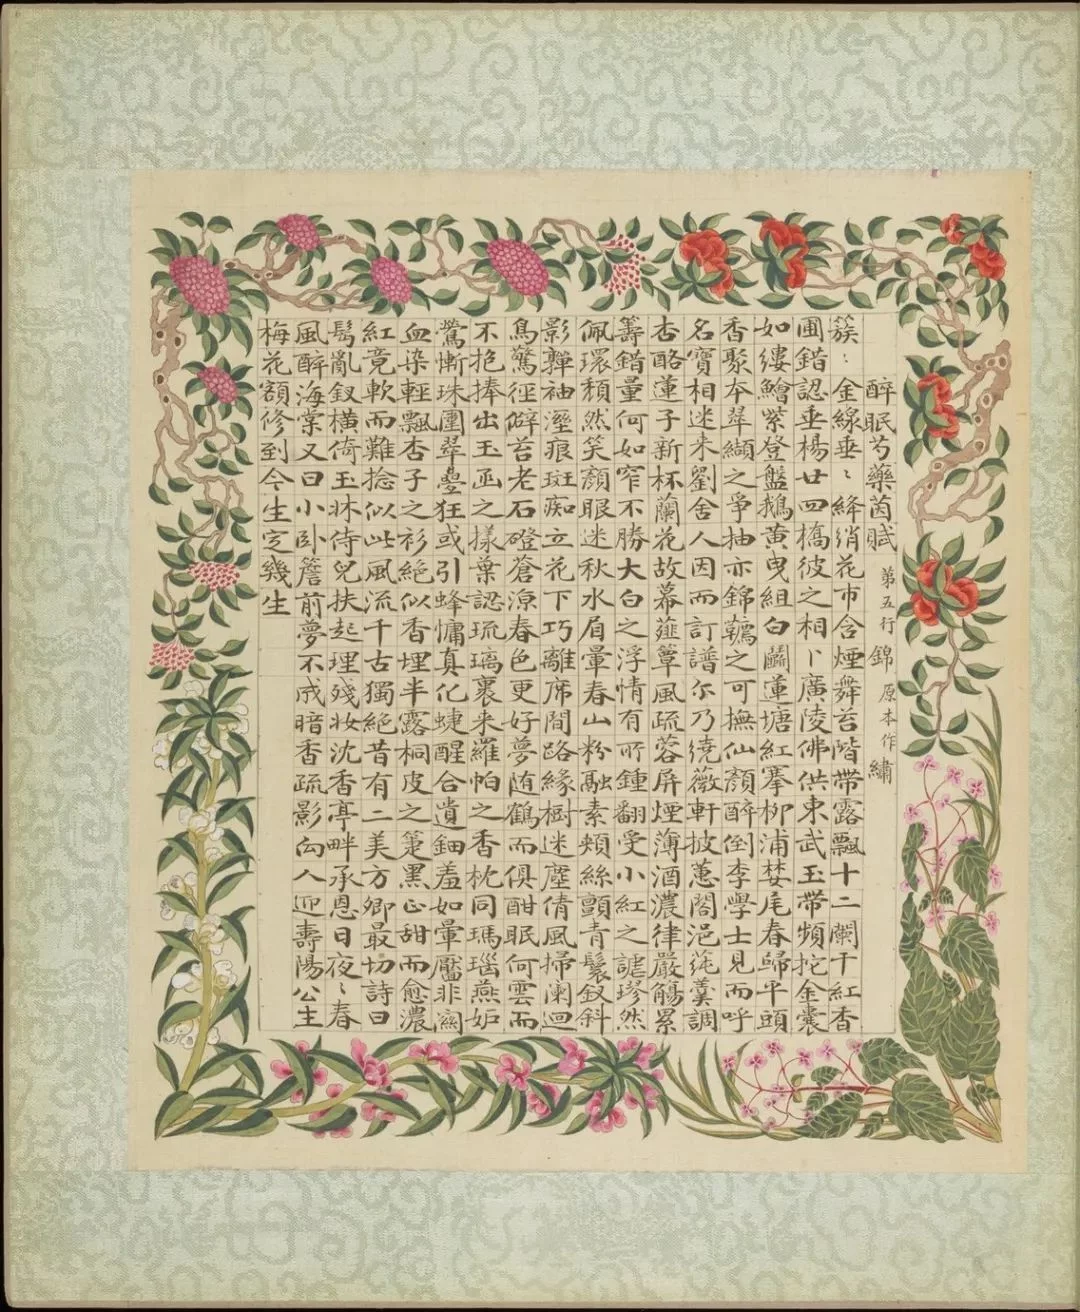 醉眠芍藥茵賦
第五行錦原本作繡
簇〻金線垂〻絳綃花市含煙舞苔階帶露飄十二闌干紅香
圃錯認垂楊廿四橋彼之相〻廣陵佛供東武玉帶頻拕金囊
如縷鱠紫登盤鵝黃曳組白鬭蓮塘紅搴柳浦婪尾春歸平頭
香聚本犖纈之爭抽亦錦韉之可撫仙顏醉倒李學士見而呼
名寶相迷來劉舍人因而訂譜尔乃繞薇軒披蕙閣浥蒓羹調
杏酪蓮子新杯蘭花故幕薤簟風疏蓉屏煙薄酒濃律嚴觴累
籌錯量何如窄不勝大白之浮情有所鍾翻受小紅之謔璆然
佩環頹然笑顏眼迷秋水眉暈春山粉融素頰絲顫青鬟釵斜
影嚲袖溼痕斑痴立花下巧離席間路緣樹迷塵倩風掃闌迴
鳥驚徑僻苔老石磴蒼涼春色更好夢随鶴而俱酣眠何雲而
不抱捧出玉巫之樣葉認琉璃裹来羅帕之香枕同瑪瑙燕妬
鶯慚珠圍翠疊狂或引蜂慵真化蜨醒合遺鈿羞如暈靨非關
血染輕飄杏子之衫絕似香埋半露桐皮之箑黑正甜而愈濃
紅竟軟而難捻似此風流千古獨絕昔有二美方卿最切詩曰
鬅亂釵橫倚玉牀侍兒扶起理殘妝沈香亭畔承恩日夜〻春
風醉海棠又曰小卧簷前夢不成暗香疏影向人迎壽陽公主
梅花額修到今生定幾生